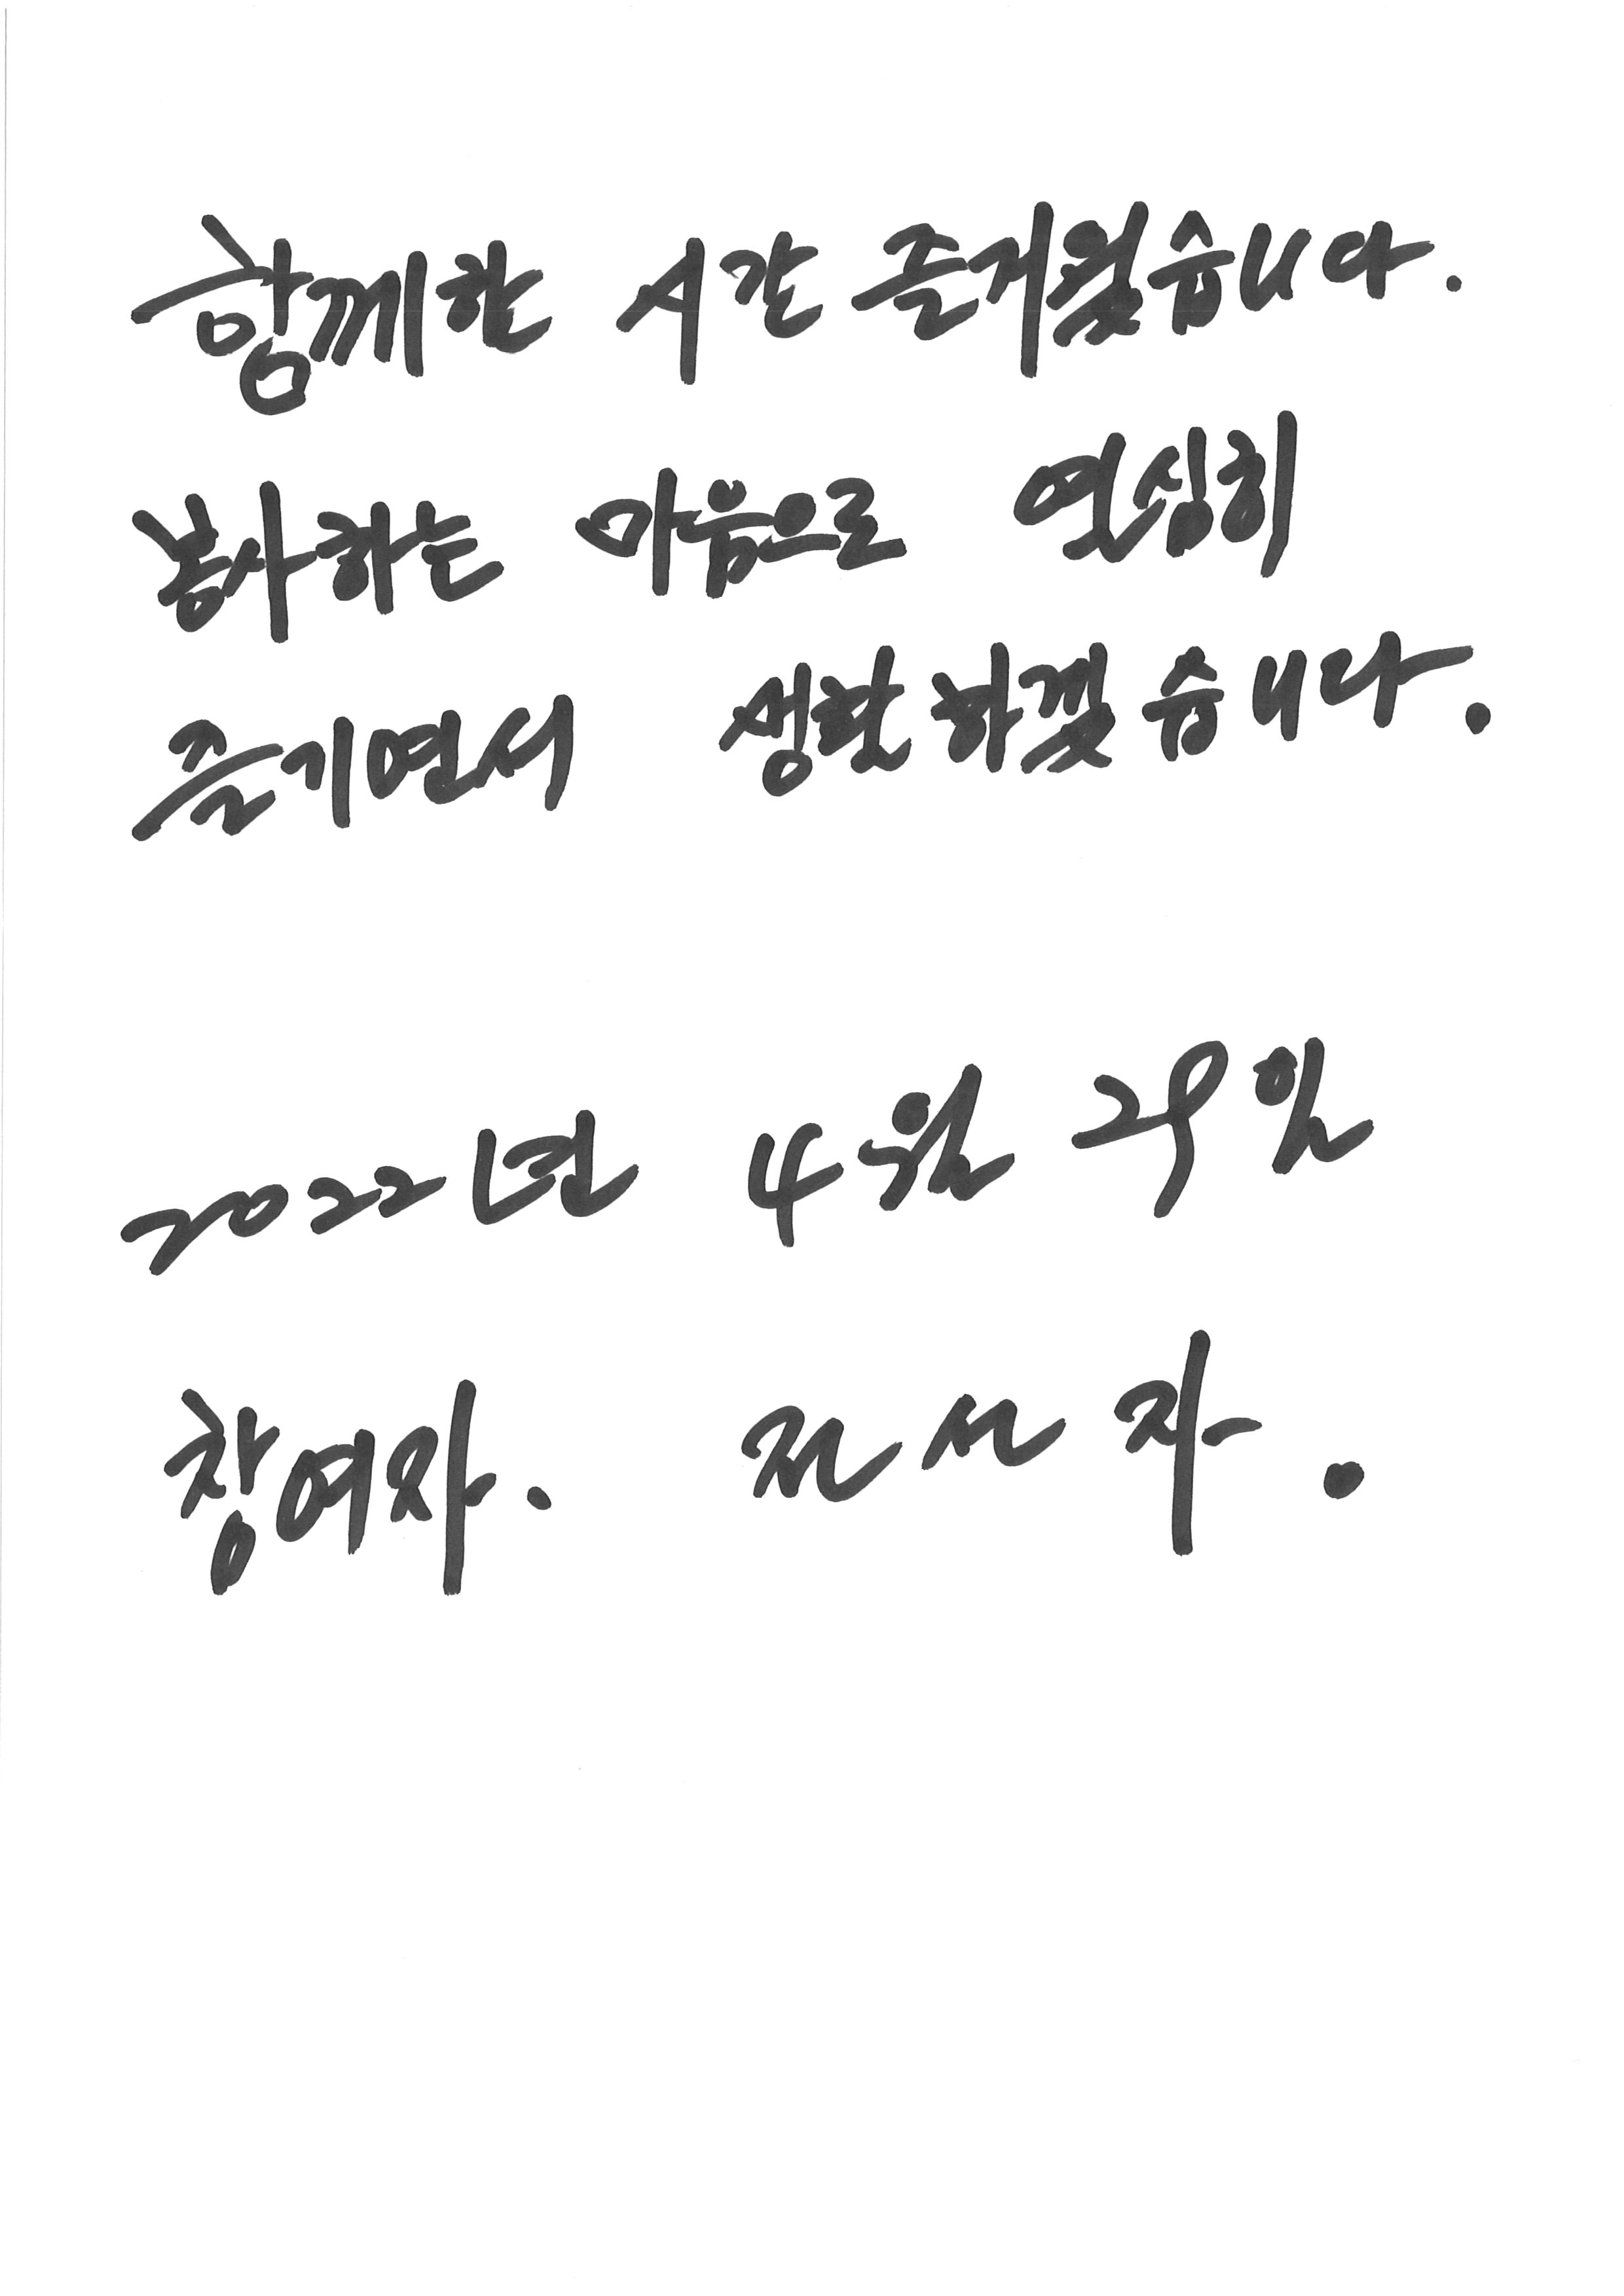 함께한 시간 즐거웠습니다.
봉사하는 마음으로 열심히
즐기면서 생활하겠습니다.
2022년 4월 29일
참여자.